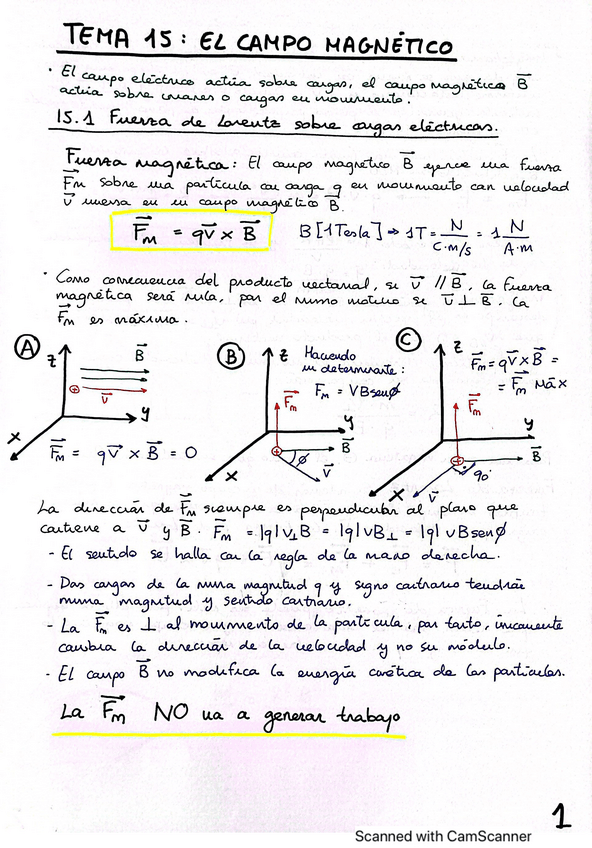 TEMA 15: EL CAMPO MAGNÉTICO
· El campo eléctrico actúa sobre cargas, el campo magnético B⃗
actúa sobre imanes o cargas en movimiento.
15.1 Fuerza de Lorentz sobre cargas eléctricas.
Fuerza magnética: El campo magnético B⃗ ejerce una fuerza
F⃗m sobre una partícula con carga q en movimiento con velocidad
v⃗ inmersa en un campo magnético B⃗.
F⃗m = qv⃗ × B⃗   B [1Tesla] ⇒ 1T = N/C·m/s = 1 N/A·m
· Como consecuencia del producto vectorial, si v⃗ // B⃗, la fuerza
magnética será nula, por el mismo motivo si v⃗ ⊥ B⃗, la
F⃗m es máxima.
A
z
B⃗
+
v⃗
y
x
F⃗m = qv⃗ × B⃗ = 0
B
z
Haciendo
un determinante:
Fm = VBsenϕ
F⃗m
y
+
B⃗
ϕ
v⃗
x
C
z
F⃗m = qv⃗ × B⃗ =
= F⃗m máx
F⃗m
y
+
B⃗
90
v⃗
x
La dirección de F⃗m siempre es perpendicular al plano que
contiene a v⃗ y B⃗. F⃗m = |q|v⊥B = |q|vB⊥ = |q|vBsenϕ
- El sentido se halla con la regla de la mano derecha.
- Dos cargas de la misma magnitud q y signo contrario tendrán
misma magnitud y sentido contrario.
- La F⃗m es ⊥ al movimiento de la partícula, por tanto, únicamente
cambia la dirección de la velocidad y no su módulo.
- El campo B⃗ no modifica la energía cinética de las partículas.
La F⃗m NO va a generar trabajo
1
Scanned with CamScanner